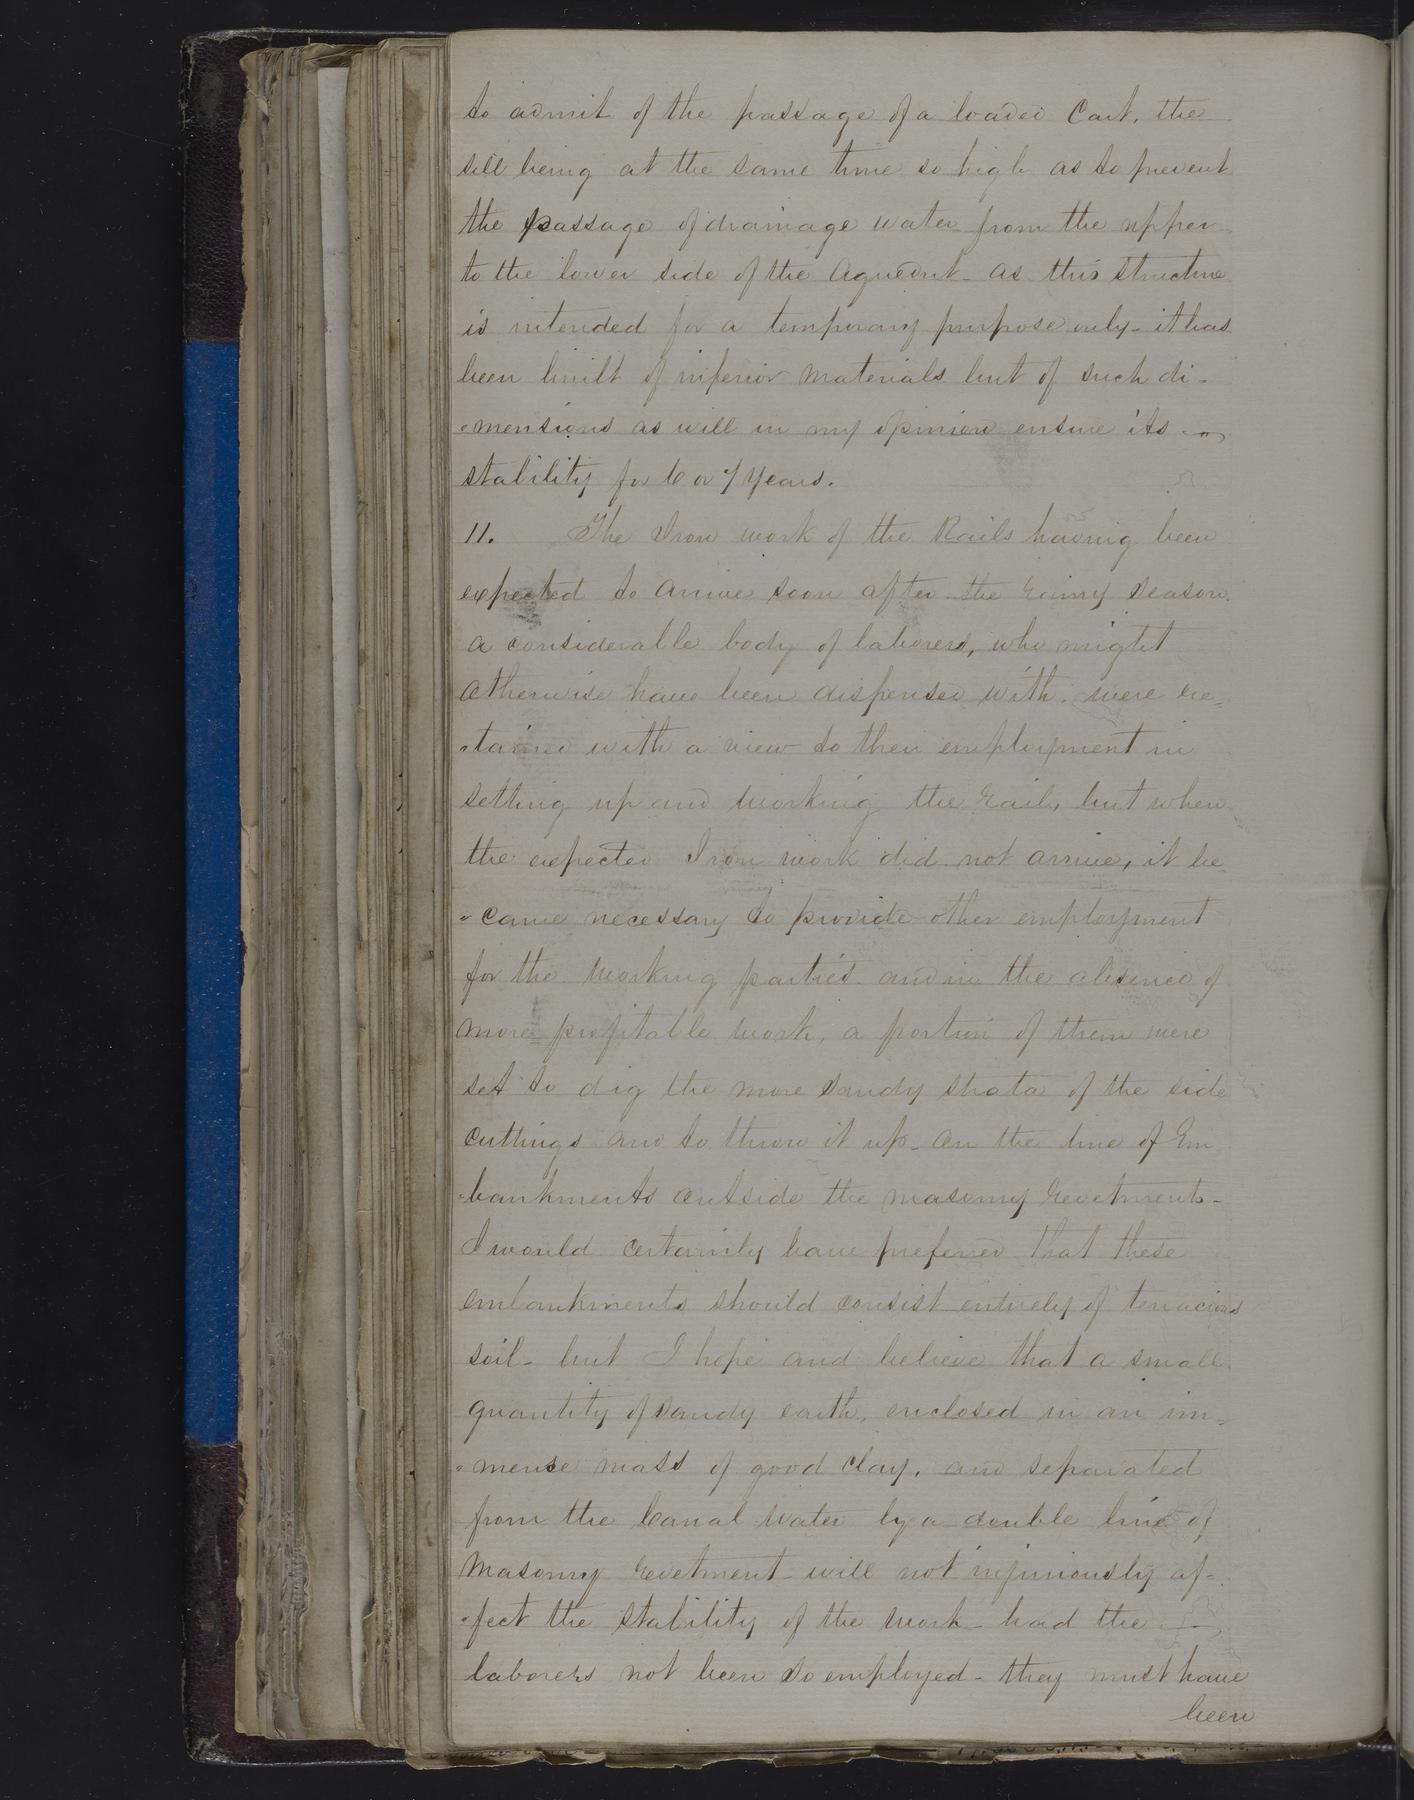 to admit of the passage of a loaded Cart, the
sill being at the same time so high as to prevent
the passage of drainage water from the upper
to the lower side of the Aqueduct - as this structure
is intended for a temporary purpose only - it has
been built of inferior materials but of such di-
-mensions as will in my opinion ensure its
stability for 6 or 7 years.
11. The Iron work of the Rails having been
expected to arrive soon after the rainy season
a considerable body of laborers, who might
otherwise have been dispensed with, were re-
-tained with a view to their employment in
setting up and working the rails, but when
the expected Iron work did not arrive, it be-
-came necessary to provide other employment
for the working parties and in the absence of
more profitable work, a portion of them were
set to dig the more sandy strata of the side
cuttings and to throw it up on the line of Em
-bankments outside the masonry revetments -
I would certainly have preferred that these
embankments should consist entirely of tenacious
soil - but I hope and believe that a small
quantity of sandy earth, enclosed in an im-
-mense mass of good clay, and separated
from the Canal water by a double line of
masonry revetment - will not injuriously af-
-fect the stability of the work - had the
laborers not been so employed - they must have
been